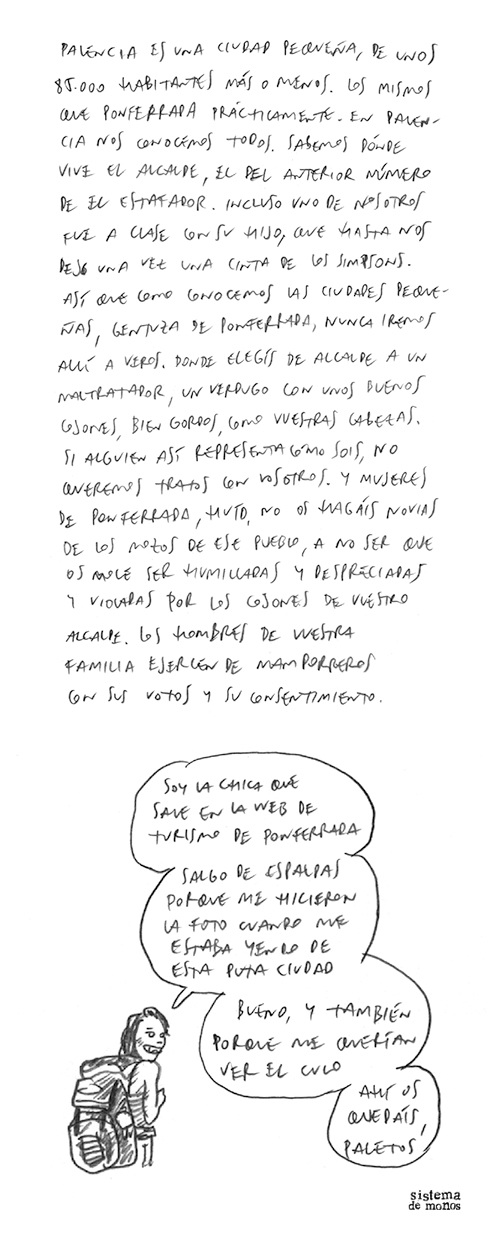 PALENCIA ES UNA CIUDAD PEQUEÑA, DE UNOS
85.000 HABITANTES MÁS O MENOS. LOS MISMOS
QUE PONFERRADA PRÁCTICAMENTE. EN PALEN-
CIA NOS CONOCEMOS TODOS. SABEMOS DÓNDE
VIVE EL ALCALDE, EL DEL ANTERIOR NÚMERO
DE EL ESTAFADOR. INCLUSO UNO DE NOSOTROS
FUE A CLASE CON SU HIJO, QUE HASTA NOS
DEJÓ UNA VEZ UNA CINTA DE LOS SIMPSONS.
ASÍ QUE COMO CONOCEMOS LAS CIUDADES PEQUE-
ÑAS, GENTUZA DE PONFERRADA, NUNCA IREMOS
ALLÍ A VEROS. DONDE ELEGÍS DE ALCALDE A UN
MALTRATADOR, UN VERDUGO CON UNOS BUENOS
COJONES, BIEN GORDOS, COMO VUESTRAS CABEZAS.
SI ALGUIEN ASÍ REPRESENTA CÓMO SOIS, NO
QUEREMOS TRATOS CON VOSOTROS. Y MUJERES
DE PONFERRADA, HUID, NO OS HAGÁIS NOVIAS
DE LOS MOZOS DE ESE PUEBLO, A NO SER QUE
OS MOLE SER HUMILLADAS Y DESPRECIADAS
Y VIOLADAS POR LOS COJONES DE VUESTRO
ALCALDE. LOS HOMBRES DE VUESTRA
FAMILIA EJERCEN DE MAMPORREROS
CON SUS VOTOS Y SU CONSENTIMIENTO.
SOY LA CHICA QUE
SALE EN LA WEB DE
TURISMO DE PONFERRADA
SALGO DE ESPALDAS
PORQUE ME HICIERON
LA FOTO CUANDO ME
ESTABA YENDO DE
ESTA PUTA CIUDAD
BUENO, Y TAMBIÉN
PORQUE ME QUERÍAN
VER EL CULO
AHÍ OS
QUEDÁIS,
PALETOS
sistema
de monos